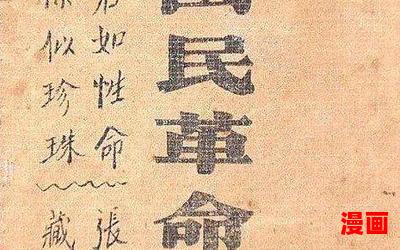 民革命
如性命 張
似珍珠 藏
漫画